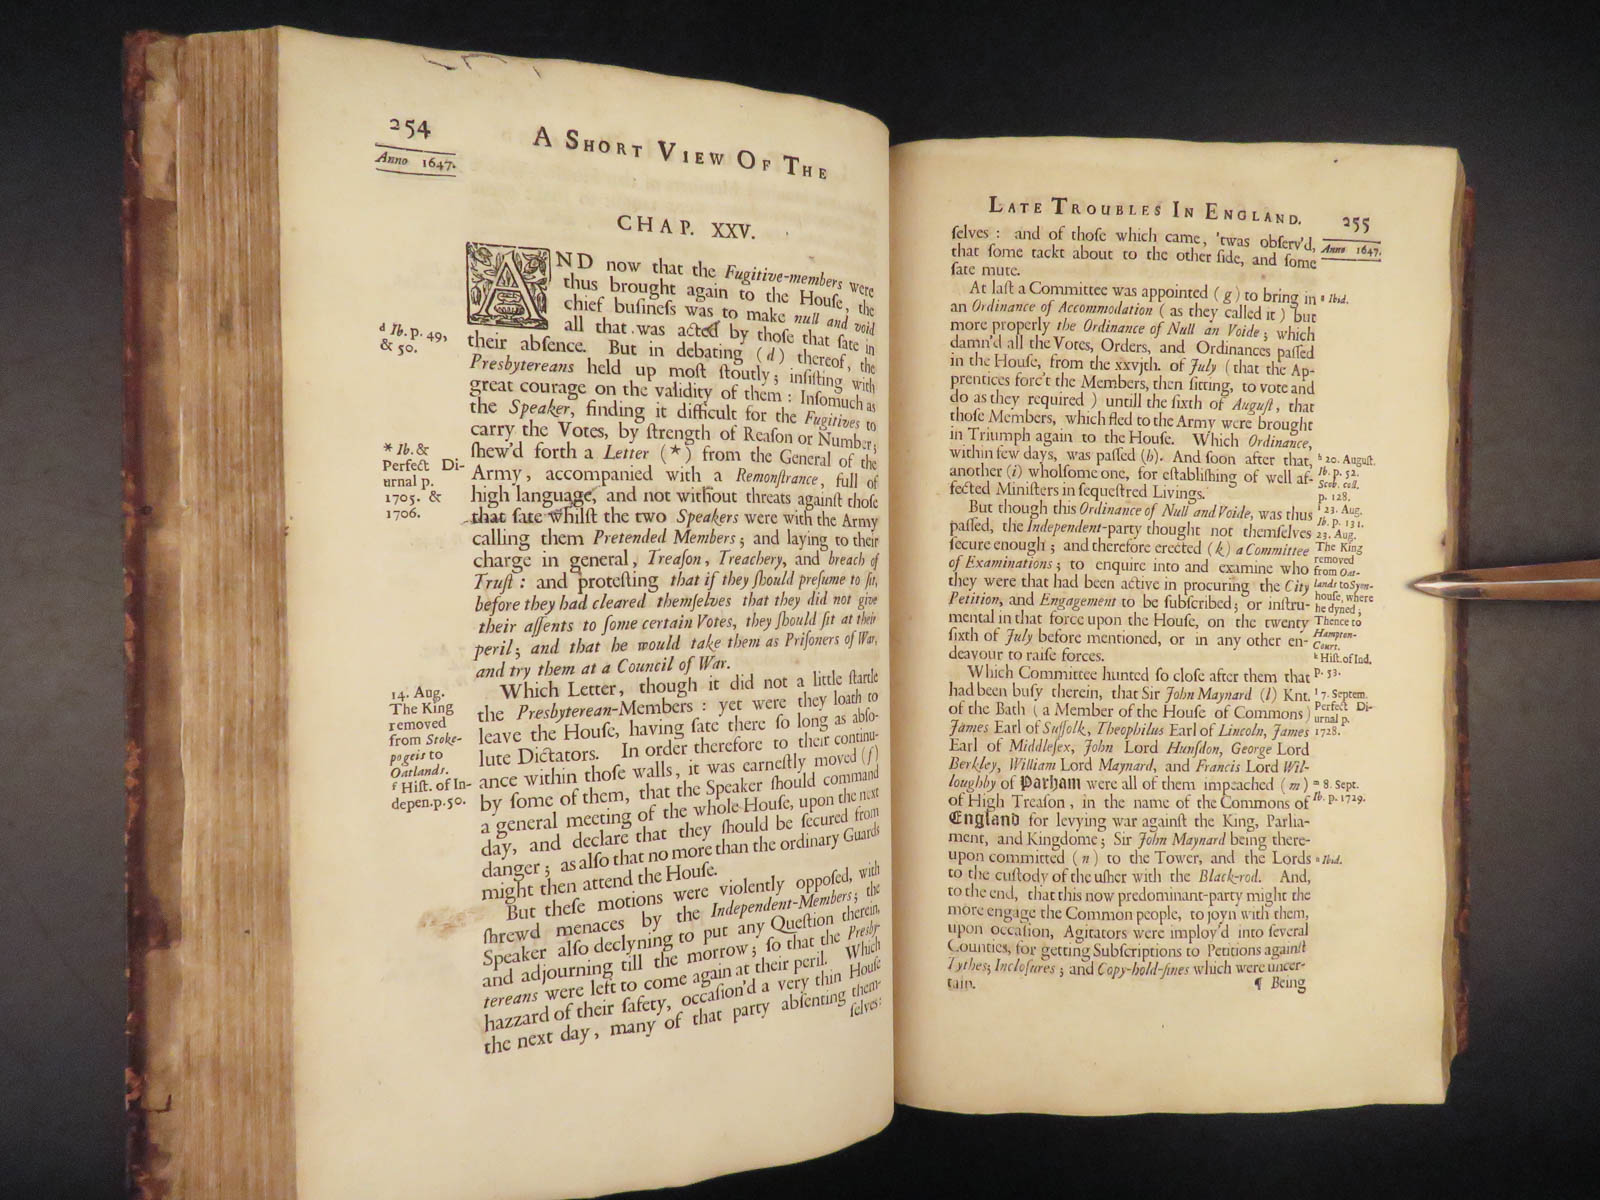 254
Anno 1647.
A SHORT VIEW OF THE
CHAP. XXV.
AND now that the Fugitive-members were
thus brought again to the Houſe, the
chief buſineſs was to make null and void
all that was acted by thoſe that ſate in
their abſence. But in debating (d) thereof, the
Presbytereans held up moſt ſtoutly; inſiſting with
great courage on the validity of them: Inſomuch as
the Speaker, finding it difficult for the Fugitives to
carry the Votes, by ſtrength of Reaſon or Number;
ſhew'd forth a Letter (*) from the General of the
Army, accompanied with a Remonſtrance, full of
high language, and not without threats againſt thoſe
that ſate whilſt the two Speakers were with the Army
calling them Pretended Members; and laying to their
charge in general, Treaſon, Treachery, and breach of
Truſt: and proteſting that if they ſhould preſume to ſit,
before they had cleared themſelves that they did not give
their aſſents to ſome certain Votes, they ſhould ſit at their
peril; and that he would take them as Priſoners of War,
and try them at a Council of War.
Which Letter, though it did not a little ſtartle
the Presbyterean-Members: yet were they loath to
leave the Houſe, having ſate there ſo long as abſo-
lute Dictators. In order therefore to their continu-
ance within thoſe walls, it was earneſtly moved (f)
by ſome of them, that the Speaker ſhould command
a general meeting of the whole Houſe, upon the next
day, and declare that they ſhould be ſecured from
danger; as alſo that no more than the ordinary Guards
might then attend the Houſe.
But theſe motions were violently oppoſed, with
ſhrewd menaces by the Independent-Members; the
Speaker alſo declyning to put any Queſtion therein,
and adjourning till the morrow; ſo that the Presby-
tereans were left to come again at their peril. Which
hazzard of their ſafety, occaſion'd a very thin Houſe
the next day, many of that party abſenting them-
ſelves:
d Ib. p. 49,
& 50.
* Ib. &
Perfect Di-
urnal p.
1705. &
1706.
14. Aug.
The King
removed
from Stoke-
pogeis to
Oatlands.
f Hiſt. of In-
depen. p. 50.
LATE TROUBLES IN ENGLAND.
255
Anno 1647.
ſelves: and of thoſe which came, 'twas obſerv'd,
that ſome tackt about to the other ſide, and ſome
ſate mute.
At laſt a Committee was appointed (g) to bring in
an Ordinance of Accommodation (as they called it) but
more properly the Ordinance of Null an Voide; which
damn'd all the Votes, Orders, and Ordinances paſſed
in the Houſe, from the xxvjth. of July (that the Ap-
prentices forc't the Members, then ſitting, to vote and
do as they required) untill the ſixth of Auguſt, that
thoſe Members, which fled to the Army were brought
in Triumph again to the Houſe. Which Ordinance,
within few days, was paſſed (h). And ſoon after that,
another (i) wholſome one, for eſtabliſhing of well af-
fected Miniſters in ſequeſtred Livings.
But though this Ordinance of Null and Voide, was thus
paſſed, the Independent-party thought not themſelves
ſecure enough; and therefore erected (k) a Committee
of Examinations; to enquire into and examine who
they were that had been active in procuring the City
Petition, and Engagement to be ſubſcribed; or inſtru-
mental in that force upon the Houſe, on the twenty
ſixth of July before mentioned, or in any other en-
deavour to raiſe forces.
Which Committee hunted ſo cloſe after them that
had been buſy therein, that Sir John Maynard (l) Knt.
of the Bath (a Member of the Houſe of Commons)
James Earl of Suffolk, Theophilus Earl of Lincoln, James
Earl of Middleſex, John Lord Hunſdon, George Lord
Berkley, William Lord Maynard, and Francis Lord Wil-
loughby of Parham were all of them impeached (m)
of High Treaſon, in the name of the Commons of
England for levying war againſt the King, Parlia-
ment, and Kingdome; Sir John Maynard being there-
upon committed (n) to the Tower, and the Lords
to the cuſtody of the uſher with the Black-rod. And,
to the end, that this now predominant-party might the
more engage the Common people, to joyn with them,
upon occaſion, Agitators were imploy'd into ſeveral
Counties, for getting Subſcriptions to Petitions againſt
Tythes; Incloſures; and Copy-hold-fines which were uncer-
tain.
¶ Being
g Ibid.
h 20. Auguſt.
Ib. p. 52.
Scob. coll.
p. 128.
i 23. Aug.
Ib. p. 131.
23. Aug.
The King
removed
from Oat-
lands to Syon-
houſe, where
he dyned;
Thence to
Hampton-
Court.
k Hiſt. of Ind.
p. 53.
l 7. Septem.
Perfect Di-
urnal p.
1728.
m 8. Sept.
Ib. p. 1729.
n Ibid.